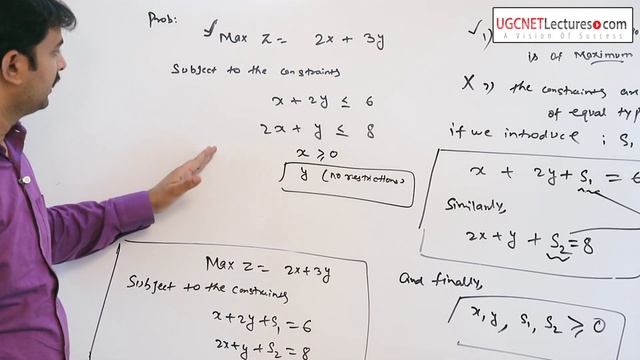 UGCNETLectures.com
A Vision Of Success
Prob:
Max Z = 2x + 3y
Subject to the constraints
x + 2y ≤ 6
2x + y ≤ 8
x ≥ 0
y (no restrictions)
Max Z = 2x+3y
Subject to the constraints
x+2y+S₁ = 6
2x+y+S₂ = 8
1)
is of Maximum
X 2) the constraints are
of equal typ
if we introduce ; S,
x + 2y + S₁ = 6
Similarly,
2x+y + S₂ = 8
And finally,
x, y, S₁, S₂ ≥ 0